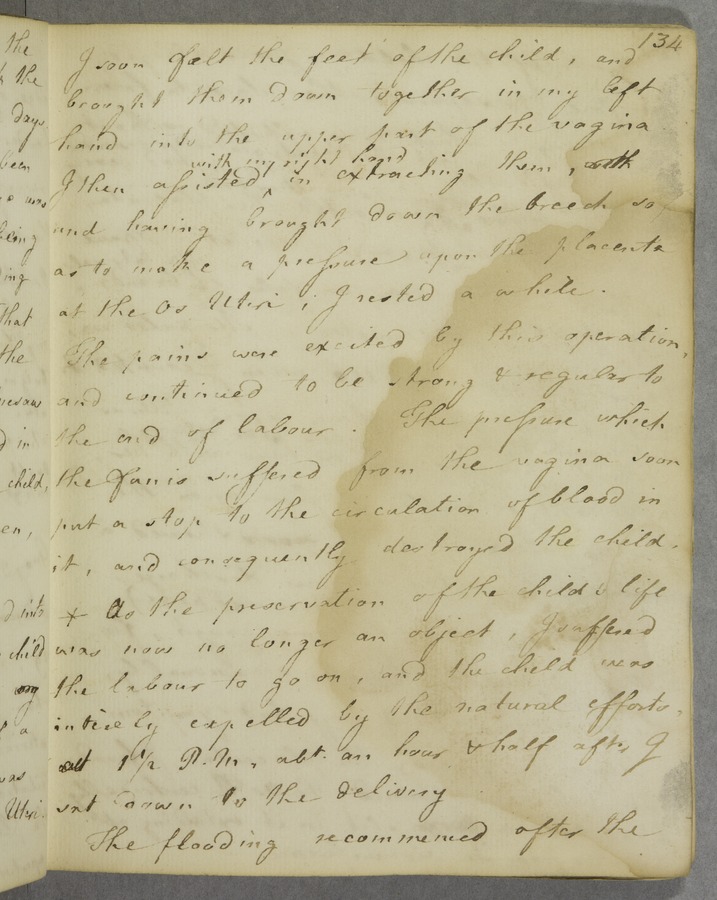 134
I soon felt the feet of the child, and
brought them down together in my left
hand into the upper part of the vagina
with my right hand
I then assisted ^ in extracting them,
and having brought down the breech so
as to make a pressure upon the placenta
at the Os Uteri; I rested a while.
The pains were excited by this operation,
and continued to be strong & regular to
the end of labour. The pressure which
the funis suffered from the vagina soon
put a stop to the circulation of blood in
it, and consequently destroyed the child.
+ As the preservation of the child's life
was now no longer an object, I suffered
the labour to go on, and the child was
intirely expelled by the natural efforts.
at 1½ P.M. abt. an hour & half after I
sat down to the delivery
The flooding recommenced after the
the
the
days
been
being
ing
that
the
d in
child,
en,
d into
child
my
f a
was
Uteri.